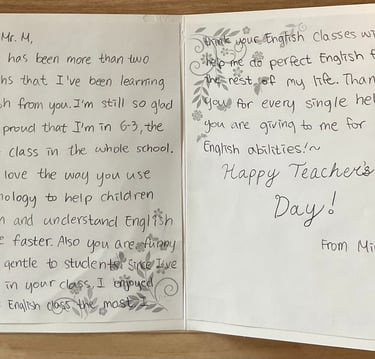 Mr. M,
has been more than two
hs that I've been learning
sh from you. I'm still so glad
proud that I'm in 6-3, the
class in the whole school.
love the way you use
nology to help children
n and understand English
e faster. Also you are funny
gentle to students. Since I've
in your class, I enjoyed
English class the most.
think your English classes wi
help me do perfect English f
the rest of my life. Than
you for every single hel
you are giving to me for
English abilities!~
Happy Teacher's
Day!
From Mi